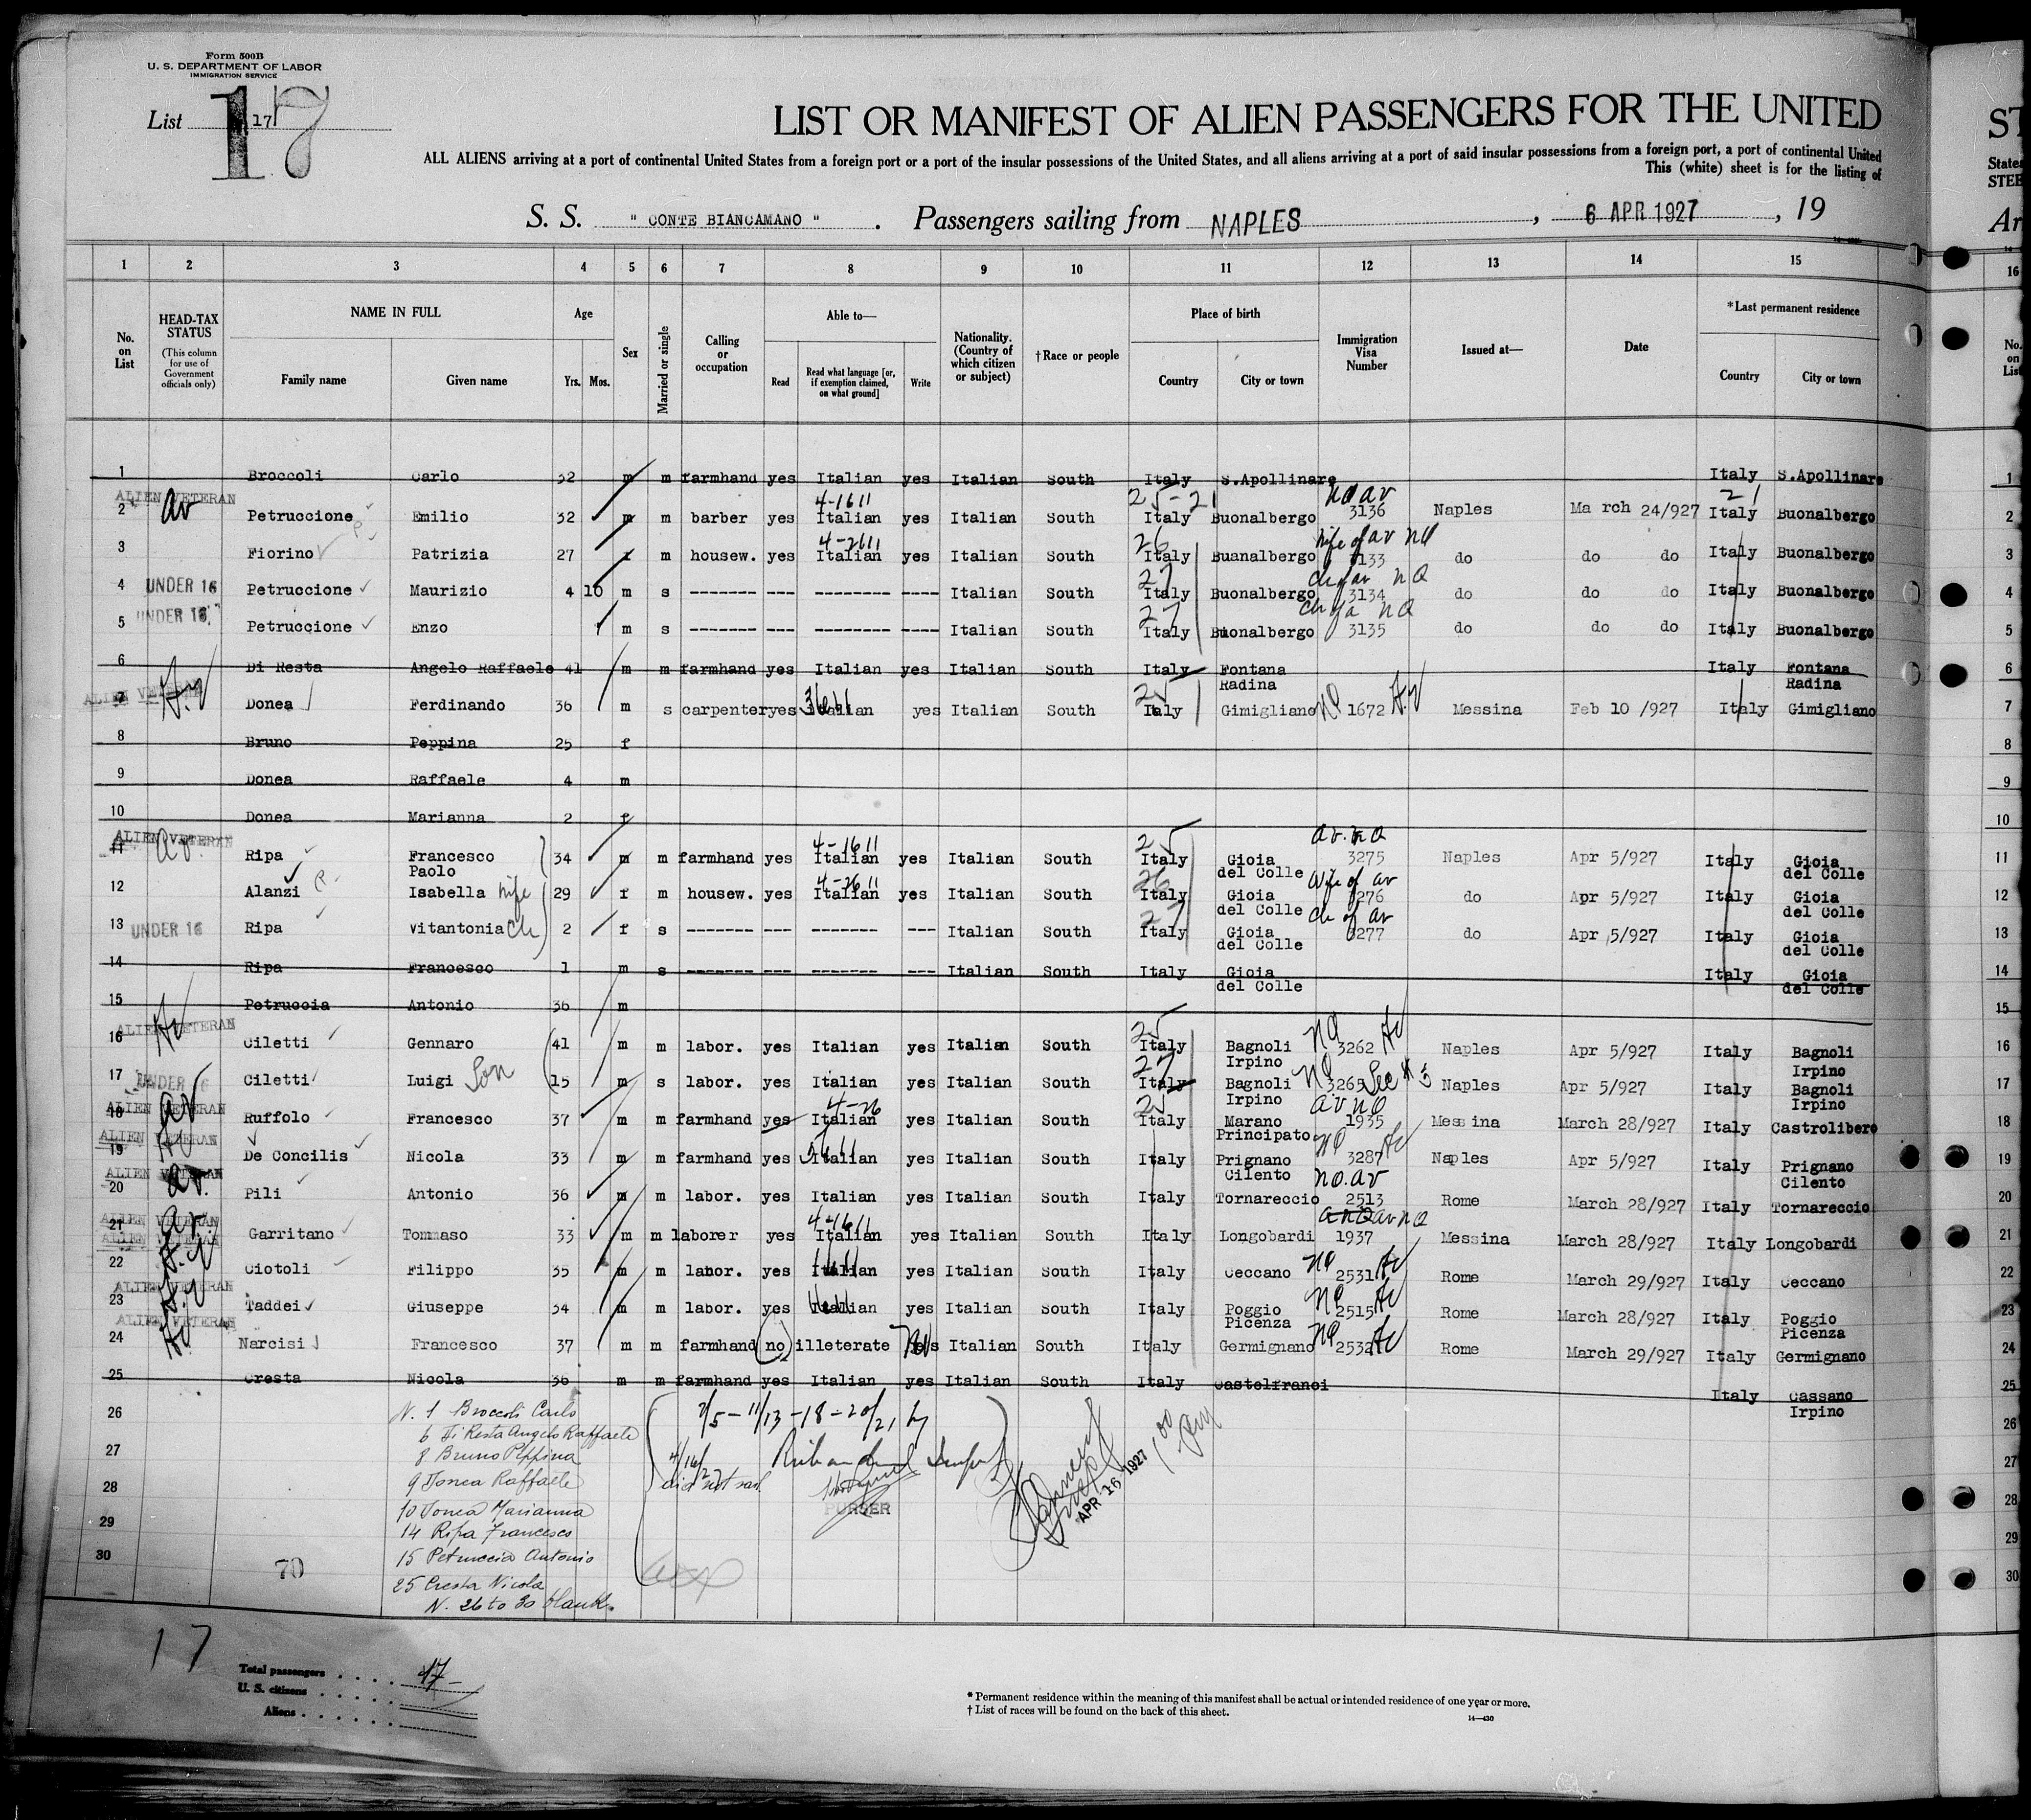 Form 500B
U. S. DEPARTMENT OF LABOR
IMMIGRATION SERVICE
List 17
17
LIST OR MANIFEST OF ALIEN PASSENGERS FOR THE UNITED
ALL ALIENS arriving at a port of continental United States from a foreign port or a port of the insular possessions of the United States, and all aliens arriving at a port of said insular possessions from a foreign port, a port of continental United
This (white) sheet is for the listing of
S. S. " CONTE BIANCAMANO " . Passengers sailing from NAPLES , 6 APR 1927 , 19
1 2 3 4 5 6 7 8 9 10 11 12 13 14 15
No. on List
HEAD-TAX STATUS (This column for use of Government officials only)
NAME IN FULL Family name Given name
Age Yrs. Mos.
Sex
Married or single
Calling or occupation
Able to— Read Read what language [or, if exemption claimed, on what ground] Write
Nationality. (Country of which citizen or subject)
†Race or people
Place of birth Country City or town
Immigration Visa Number
Issued at—
Date
*Last permanent residence Country City or town
1 Broccoli Carlo 32 m m farmhand yes Italian yes Italian South Italy S.Apollinare Italy S.Apollinare 1
ALIEN VETERAN av 4-1611 25-21 no av 21
2 Petruccione Emilio 32 m m barber yes Italian yes Italian South Italy Buonalbergo 3136 Naples Ma rch 24/927 Italy Buonalbergo 2
4-2611 26 wife of av NQ
3 Fiorino Patrizia 27 f m housew. yes Italian yes Italian South Italy Buanalbergo 3133 do do do Italy Buonalbergo 3
27 ch of av NQ
4 UNDER 16 Petruccione Maurizio 4 10 m s ------- --- -------- ---- Italian South Italy Buonalbergo 3134 do do do Italy Buonalbergo 4
UNDER 16 27 NQ
5 Petruccione Enzo m s ------- --- -------- ---- Italian South Italy Buonalbergo 3135 do do do Italy Buonalbergo 5
6 Di Resta Angelo Raffaele 41 m m farmhand yes Italian yes Italian South Italy Fontana Italy Fontana 6
Radina Radina
ALIEN VETERAN A.V 25
7 Donea Ferdinando 36 m s carpenter yes Italian yes Italian South Italy Gimigliano NQ 1672 A.V Messina Feb 10 /927 Italy Gimigliano 7
8 Bruno Peppina 25 f 8
9 Donea Raffaele 4 m 9
10 Donea Marianna 2 f 10
ALIEN VETERAN av. 4-1611 25 av. NQ
11 Ripa Francesco 34 m m farmhand yes Italian yes Italian South Italy Gioia 3275 Naples Apr 5/927 Italy Gioia 11
Paolo del Colle del Colle
4-2611 26 Wife of av
12 Alanzi Isabella wife 29 f m housew. yes Italian yes Italian South Italy Gioia 3276 do Apr 5/927 Italy Gioia 12
del Colle del Colle
27 ch of av
13 UNDER 16 Ripa Vitantonia ch 2 f s ------- --- ------- --- Italian South Italy Gioia 3277 do Apr 5/927 Italy Gioia 13
del Colle del Colle
14 Ripa Francesco 1 m s ------- --- ------- --- Italian South Italy Gioia Italy Gioia 14
del Colle del Colle
15 Petruccia Antonio 36 m 15
ALIEN VETERAN Av 25 NQ Av
16 Ciletti Gennaro 41 m m labor. yes Italian yes Italian South Italy Bagnoli 3262 Naples Apr 5/927 Italy Bagnoli 16
Irpino Irpino
UNDER 16 27
17 Ciletti Luigi Son 15 m s labor. yes Italian yes Italian South Italy Bagnoli NQ 3263 Naples Apr 5/927 Italy Bagnoli 17
Irpino Irpino
ALIEN VETERAN av 4-26 25 av NQ
18 Ruffolo Francesco 37 m m farmhand yes Italian yes Italian South Italy Marano 1935 Messina March 28/927 Italy Castrolibero 18
Principato
ALIEN VETERAN NQ Av
19 De Concilis Nicola 33 m m farmhand yes Italian yes Italian South Italy Prignano 3287 Naples Apr 5/927 Italy Prignano 19
Cilento Cilento
ALIEN VETERAN av. no.av
20 Pili Antonio 36 m m labor. yes Italian yes Italian South Italy Tornareccio 2513 Rome March 28/927 Italy Tornareccio 20
ALIEN VETERAN av. 4-1611 av NQ
21 Garritano Tommaso 33 m m laborer yes Italian yes Italian South Italy Longobardi 1937 Messina March 28/927 Italy Longobardi 21
ALIEN VETERAN A.V
22 Ciotoli Filippo 35 m m labor. yes Italian yes Italian South Italy Ceccano NQ 2531 Av Rome March 29/927 Italy Ceccano 22
ALIEN VETERAN A.V
23 Taddei Giuseppe 34 m m labor. yes Italian yes Italian South Italy Poggio NQ 2515 Av Rome March 28/927 Italy Poggio 23
Picenza Picenza
ALIEN VETERAN Av
24 Narcisi Francesco 37 m m farmhand no illeterate Italian South Italy Germignano NQ 2532 Av Rome March 29/927 Italy Germignano 24
25 Cresta Nicola 36 m m farmhand yes Italian yes Italian South Italy Castelfranci Italy Cassano 25
Irpino
26 N. 1 Broccoli Carlo 2/5-11/13-18-20/21 by 26
6 Di Resta Angelo Raffaele
27 8 Bruno Peppina 27
9 Donea Raffaele did not sail
28 10 Donea Marianna PURSER APR 16 1927 28
29 14 Ripa Francesco 29
30 15 Petruccia Antonio 30
70
25 Cresta Nicola
N. 26 to 30 blank.
17
Total passengers . . . . 17
U. S. citizens . . . . .
Aliens . . . . . .
* Permanent residence within the meaning of this manifest shall be actual or intended residence of one year or more.
† List of races will be found on the back of this sheet.
14—430
ST
States
STEE
Ar
16
No. on List